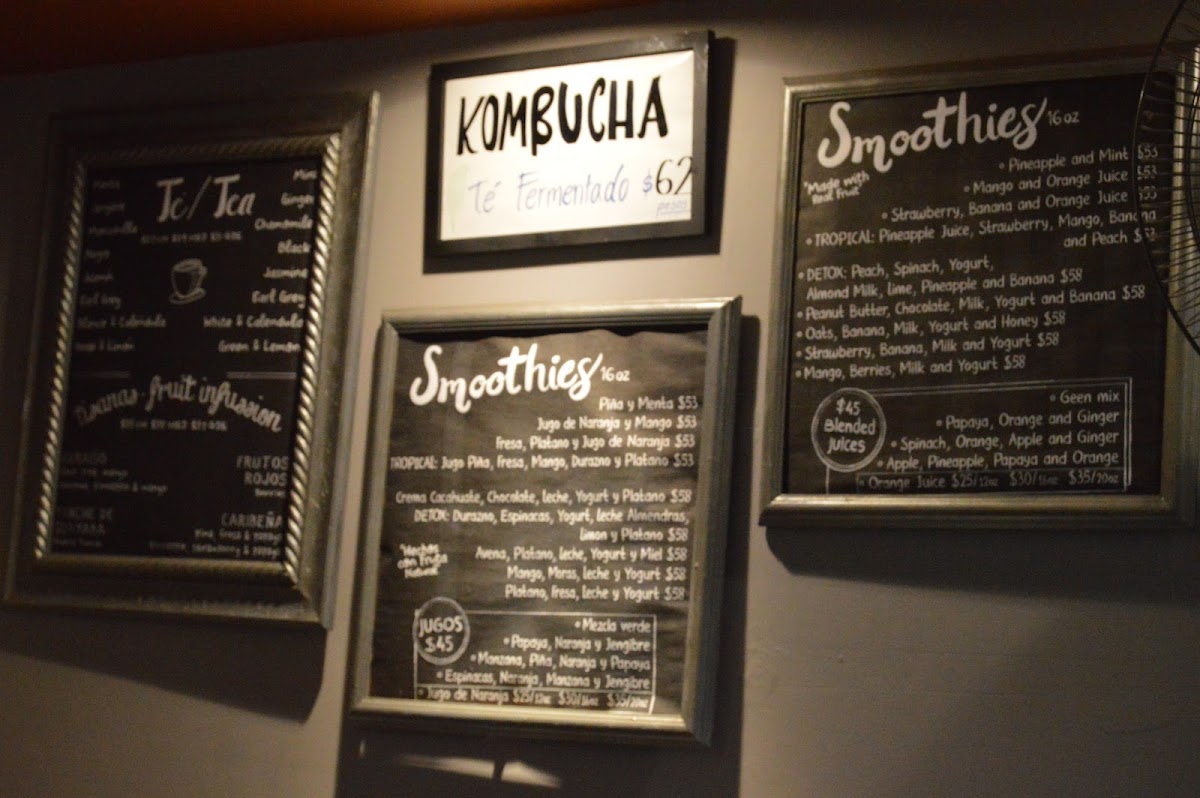 Té/Tea
Menta
Mint
Ginger
Manzanilla
Chamomile
Negro
Black
Jasmine
Earl Grey
Earl Grey
Blanco & Calendula
White & Calendula
Limón
Green & Lemon
Tisanas - fruit infussion
FRUTOS
ROJOS
Berries
PONCHE DE
CARIBEÑA
KOMBUCHA
Té Fermentado $62
pesos
Smoothies 16 oz
Piña y Menta $53
Jugo de Naranja y Mango $53
Fresa, Platano y Jugo de Naranja $53
TROPICAL: Jugo Piña, Fresa, Mango, Durazno y Platano $53
Crema Cacahuate, Chocolate, leche, Yogurt y Platano $58
DETOX: Durazno, Espinacas, Yogurt, leche Almendras,
Limon y Platano $58
"Hechos
con Fruta
Natural"
Avena, Platano, leche, Yogurt y Miel $58
Mango, Moras, leche y Yogurt $58
Platano, fresa, leche y Yogurt $58
JUGOS
$45
• Mezcla verde
• Papaya, Naranja y Jengibre
• Manzana, Piña, Naranja y Papaya
• Espinacas, Naranja, Manzana y Jengibre
• Jugo de Naranja $25/12oz $30/16oz $35/20oz
Smoothies 16 oz
"Made with
Real Fruit"
• Pineapple and Mint $53
• Mango and Orange Juice $53
• Strawberry, Banana and Orange Juice $53
• TROPICAL: Pineapple Juice, Strawberry, Mango, Banana
and Peach $53
• DETOX: Peach, Spinach, Yogurt,
Almond Milk, lime, Pineapple and Banana $58
• Peanut Butter, Chocolate, Milk, Yogurt and Banana $58
• Oats, Banana, Milk, Yogurt and Honey $58
• Strawberry, Banana, Milk and Yogurt $58
• Mango, Berries, Milk and Yogurt $58
$45
Blended
Juices
• Geen mix
• Papaya, Orange and Ginger
• Spinach, Orange, Apple and Ginger
• Apple, Pineapple, Papaya and Orange
• Orange Juice $25/12oz $30/16oz $35/20oz